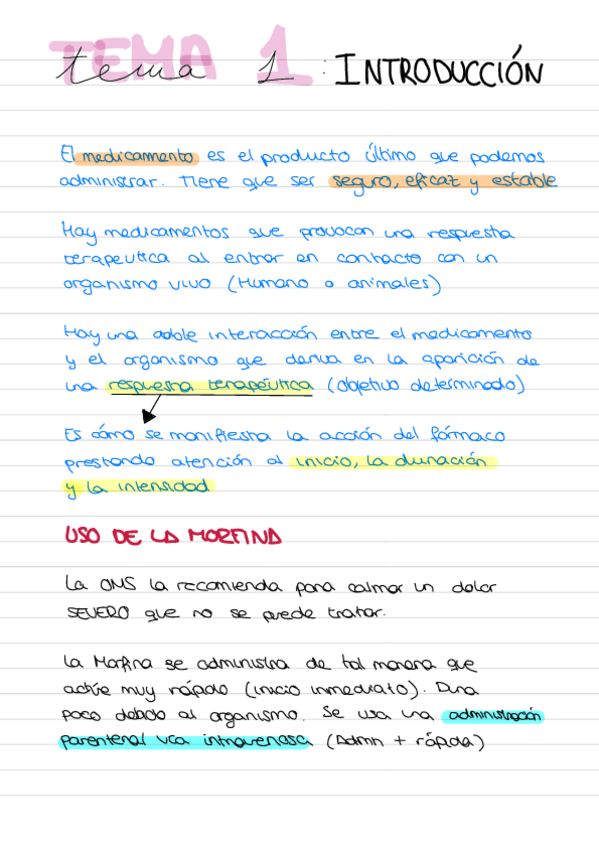 TEMA 1
tema 1: INTRODUCCIÓN
El medicamento es el producto último que podemos
administrar. Tiene que ser seguro, eficaz y estable
Hay medicamentos que provocan una respuesta
terapeutica al entrar en contacto con un
organismo vivo (Humano o animales)
Hay una doble interacción entre el medicamento
y el organismo que deriva en la aparición de
una respuesta terapéutica (objetivo determinado)
Es cómo se manifiesta la acción del fármaco
prestando atención al inicio, la duración
y la intensidad
USO DE LA MORFINA
La OMS la recomienda para calmar un dolor
SEVERO que no se puede tratar.
La Morfina se administra de tal manera que
actúe muy rápido (inicio inmediato). Dura
poco debido al organismo. Se usa una administración
parenteral vía intravenosa (Admn + rápida)